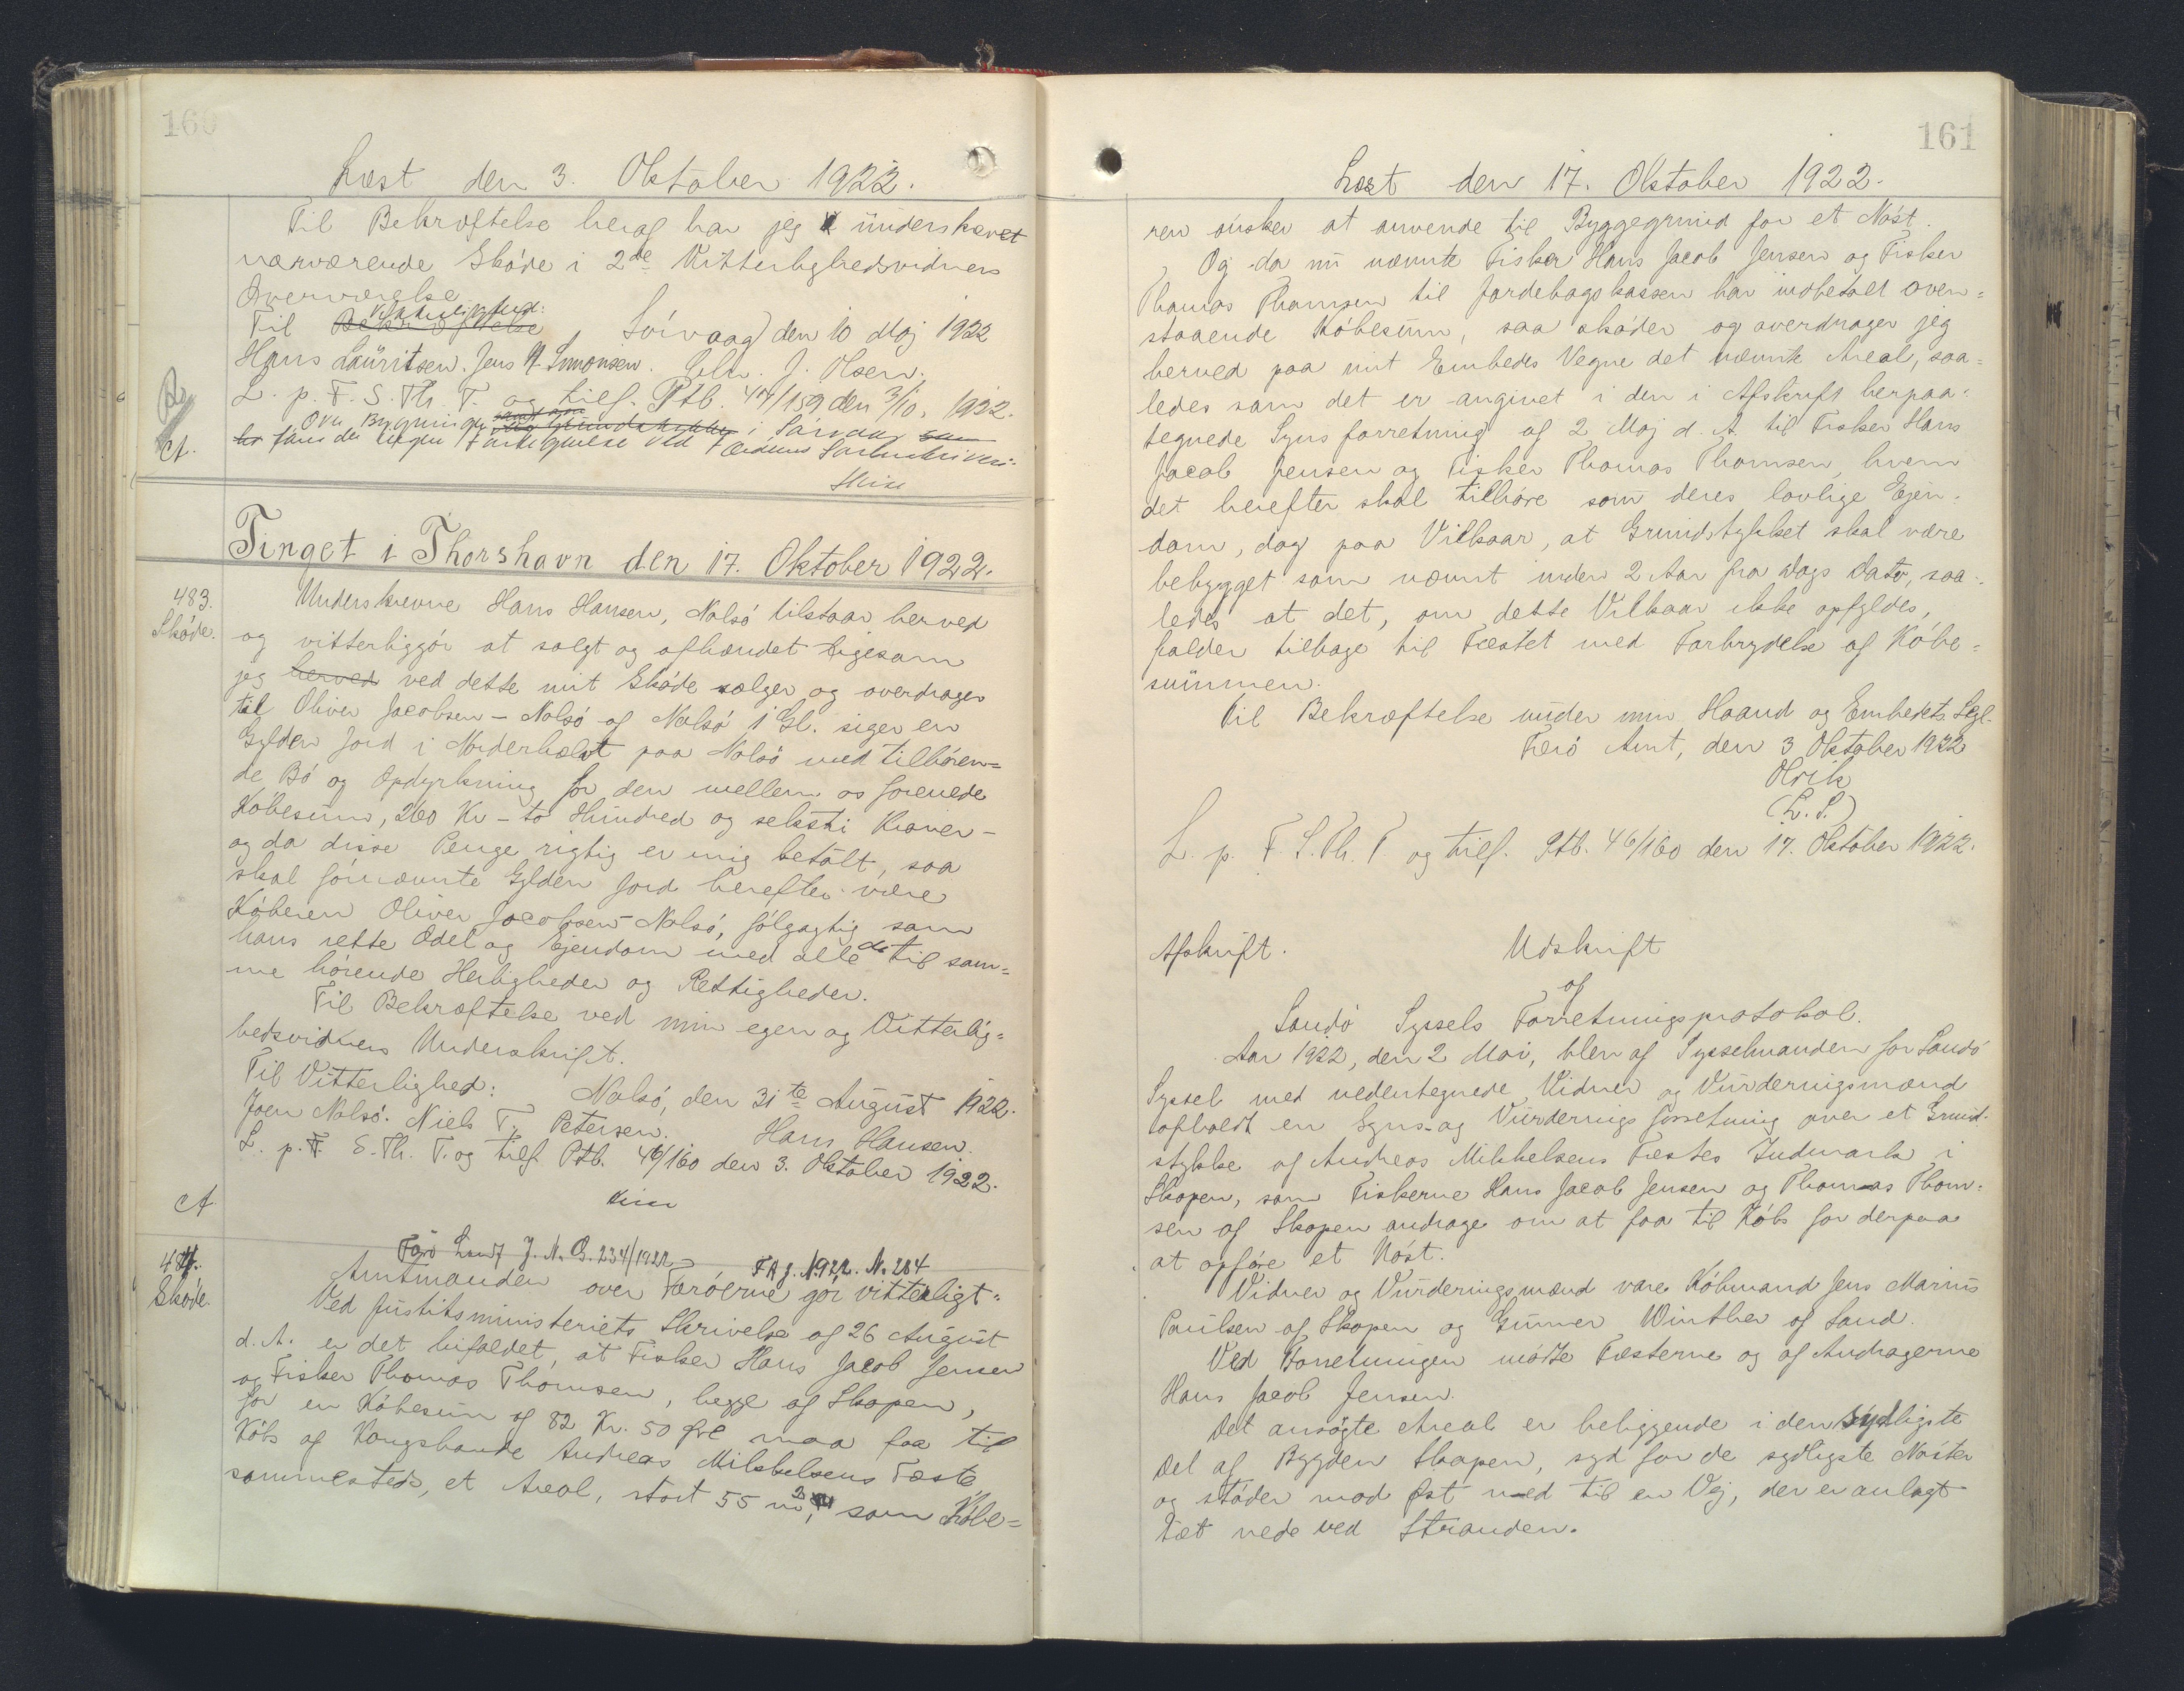 160
Læst den 3. Oktober 1922.
Til Bekræftelse heraf har jeg underskrevet
nærværende Skøde i 2de Vitterlighedsvidners
Overværelse
Vitterlighed:
Til Bekræftelse, Sørvaag den 10 Maj 1922
Hans Lauritsen. Jens H. Simonsen. Chr. J. Olsen.
L. p. F. S. Th. T. og tilf. Ptb. 44/159 den 3/10. 1922.
Ovn Bygninger i Sørvaag
483.
Skøde.
A.
Tinget i Thorshavn den 17. Oktober 1922.
Underskrevne Hans Hansen, Nolsø tilstaar herved
og vitterliggør at solgt og afhændet ligesom
jeg herved ved dette mit Skøde sælger og overdrager
til Oliver Jacobsen - Nolsø af Nolsø 1 Gl. siger en
Gylden Jord i Norderhælvt paa Nolsø med tilhøren=
de Bø og Opdyrkning for den mellem os forenede
Købesum, 260 Kr - to Hundred og seksti Kroner -
og da disse Penge rigtig er mig betalt, saa
skal førnævnte Gylden Jord herefter være
Køberen Oliver Jacobsen - Nolsø, følgagtig som
hans rette Odel og Ejendom med alle de til sam=
me hørende Herligheder og Rettigheder.
Til Bekræftelse ved min egen og Vitterlig=
hedsvidners Underskrift.
Nolsø, den 31te August 1922.
Til Vitterlighed:
Joen Nolsø. Niels T. Petersen. Hans Hansen.
L. p. F. S. Th. T. og tilf. Ptb. 46/160 den 3. Oktober 1922.
A
484.
Skøde.
Færø Amt J. N. B. 234/1922 - F A J. 1922. N. 284
Amtmanden over Færøerne gør vitterligt:
Ved Justitsministeriets Skrivelse af 26 August
d. A. er det bifaldet, at Fisker Hans Jacob Jensen
og Fisker Thomas Thomsen, begge af Skopen,
for en Købesum af 82 Kr. 50 Øre maa faa til
Købs af Kongsbonde Andreas Mikkelsens Fæste
sammesteds, et Areal, stort 55 m2, som Købe=
161
Læst den 17. Oktober 1922.
ren ønsker at anvende til Byggegrund for et Nøst.
Og da nu nævnte Fisker Hans Jacob Jensen og Fisker
Thomas Thomsen til Jordebogskassen har indbetalt oven=
staaende Købesum, saa skøder og overdrager jeg
herved paa mit Embedes Vegne det nævnte Areal, saa=
ledes som det er angivet i den i Afskrift herpaa=
tegnede Synsforretning af 2 Maj d. A. til Fisker Hans
Jacob Jensen og Fisker Thomas Thomsen, hvem
det herefter skal tilhøre som deres lovlige Ejen=
dom, dog paa Vilkaar, at Grundstykket skal være
bebygget som nævnt inden 2 Aar fra Dags Dato, saa=
ledes at det, om dette Vilkaar ikke opfyldes,
falder tilbage til Fæstet med Forbrydelse af Købe=
summen.
Til Bekræftelse under min Haand og Embedets Segl.
Færø Amt, den 3 Oktober 1922
Olrik
(L. S.)
L. p. F. S. Th. T. og tilf. Ptb. 46/160 den 17. Oktober 1922.
Afskrift. Udskrift
af
Sandø Syssels Forretningsprotokol.
Aar 1922, den 2 Mai, blev af Sysselmanden for Sandø
Syssel med nedentegnede Vidner og Vurderingsmænd
afholdt en Syns- og Vurderings forretning over et Grund-
stykke af Andreas Mikkelsens Fæstes Indmark i
Skopen, som Fiskerne Hans Jacob Jensen og Thomas Thom=
sen af Skopen androge om at faa til Købs for derpaa
at opføre et Nøst.
Vidner og Vurderingsmænd vare Købmand Jens Marius
Poulsen af Skopen og Gunner Winther af Sand.
Ved Forretningen mødte Fæsterne og af Andragerne
Hans Jacob Jensen.
Det ansøgte Areal er beliggende i den sydligste
Del af Bygden Skopen, syd for de sydligste Nøster
og støder mod Øst ned til en Vej, der er anlagt
tæt nede ved Stranden.